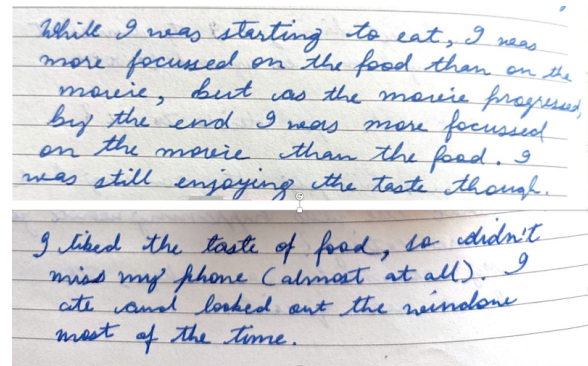 While I was starting to eat, I was
more focussed on the food than on the
movie, but as the movie progressed,
by the end I was more focussed
on the movie than the food. I
was still enjoying the taste though.
I liked the taste of food, so didn't
miss my phone (almost at all). I
ate and looked out the window
most of the time.